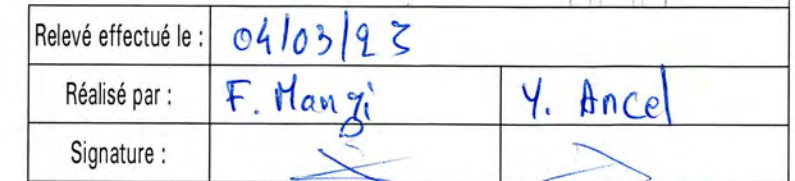 Relevé effectué le : 04/03/93
Réalisé par : F. Mangi Y. Ancel
Signature :